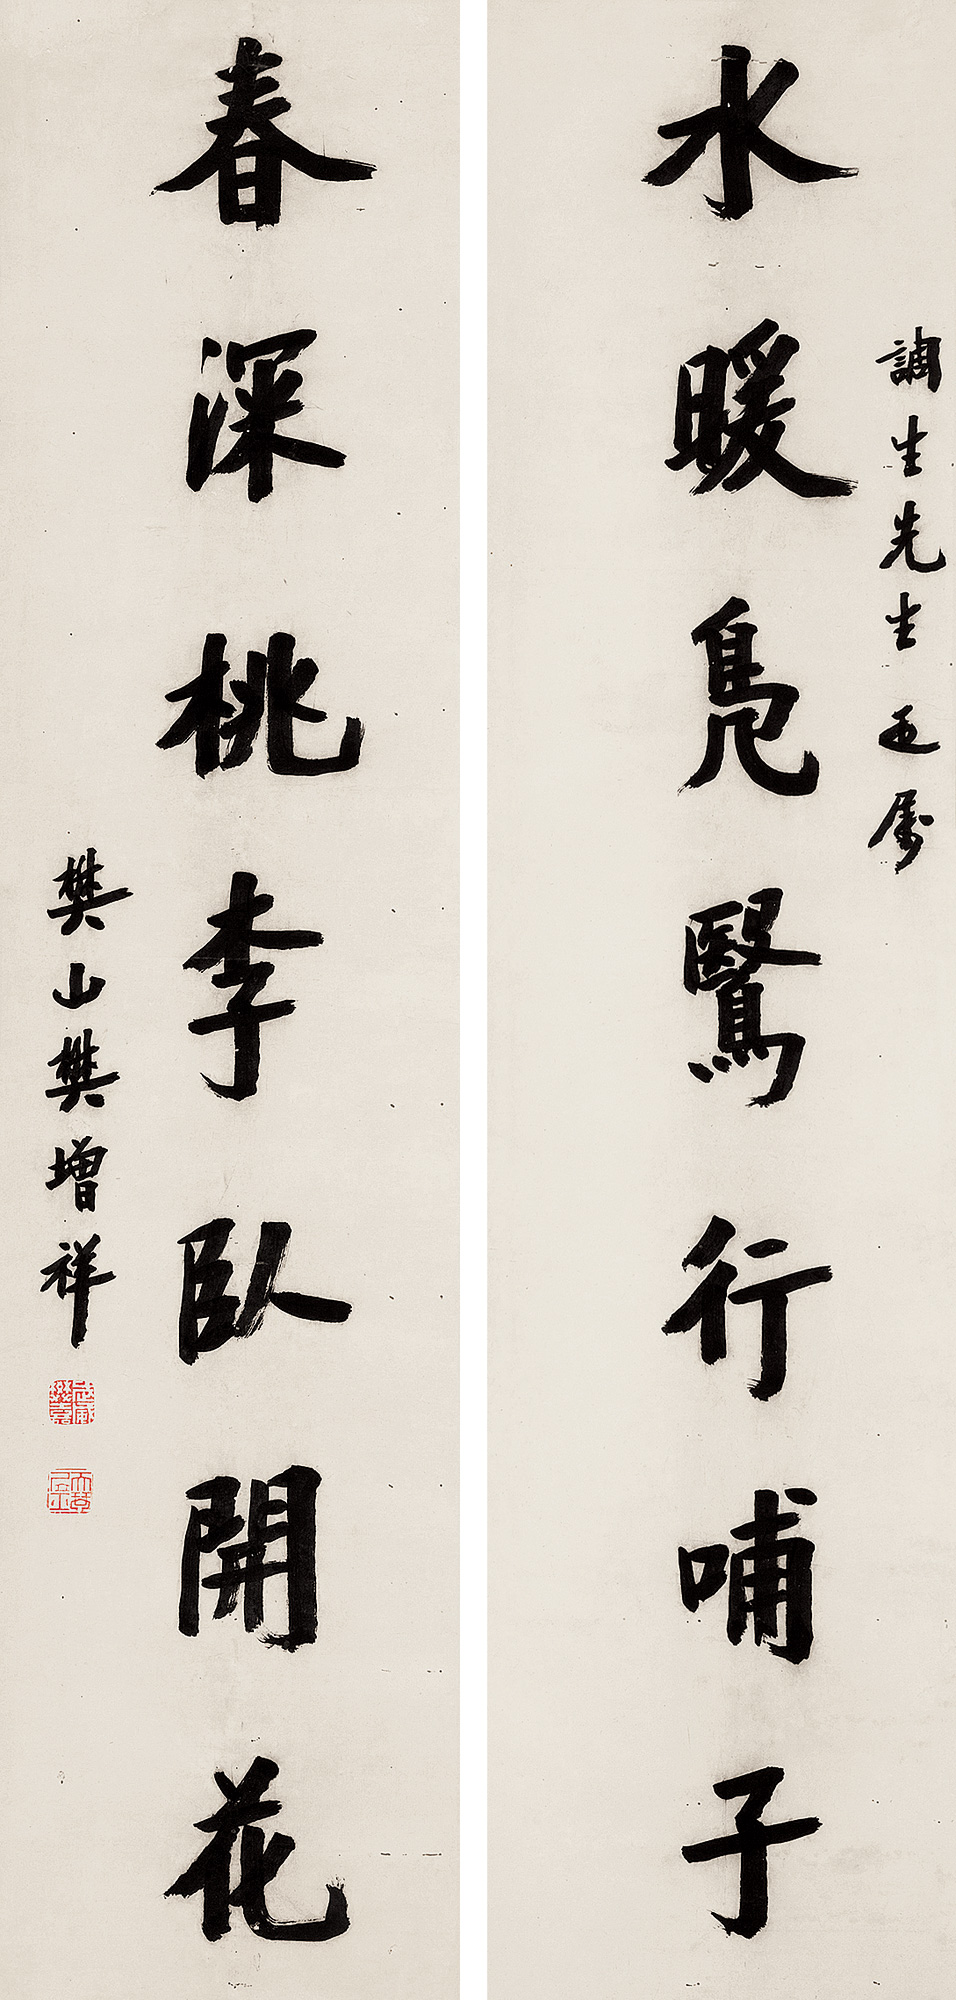 調生先生正屬
水暖鳧鷖行哺子
春深桃李臥開花
樊山樊增祥